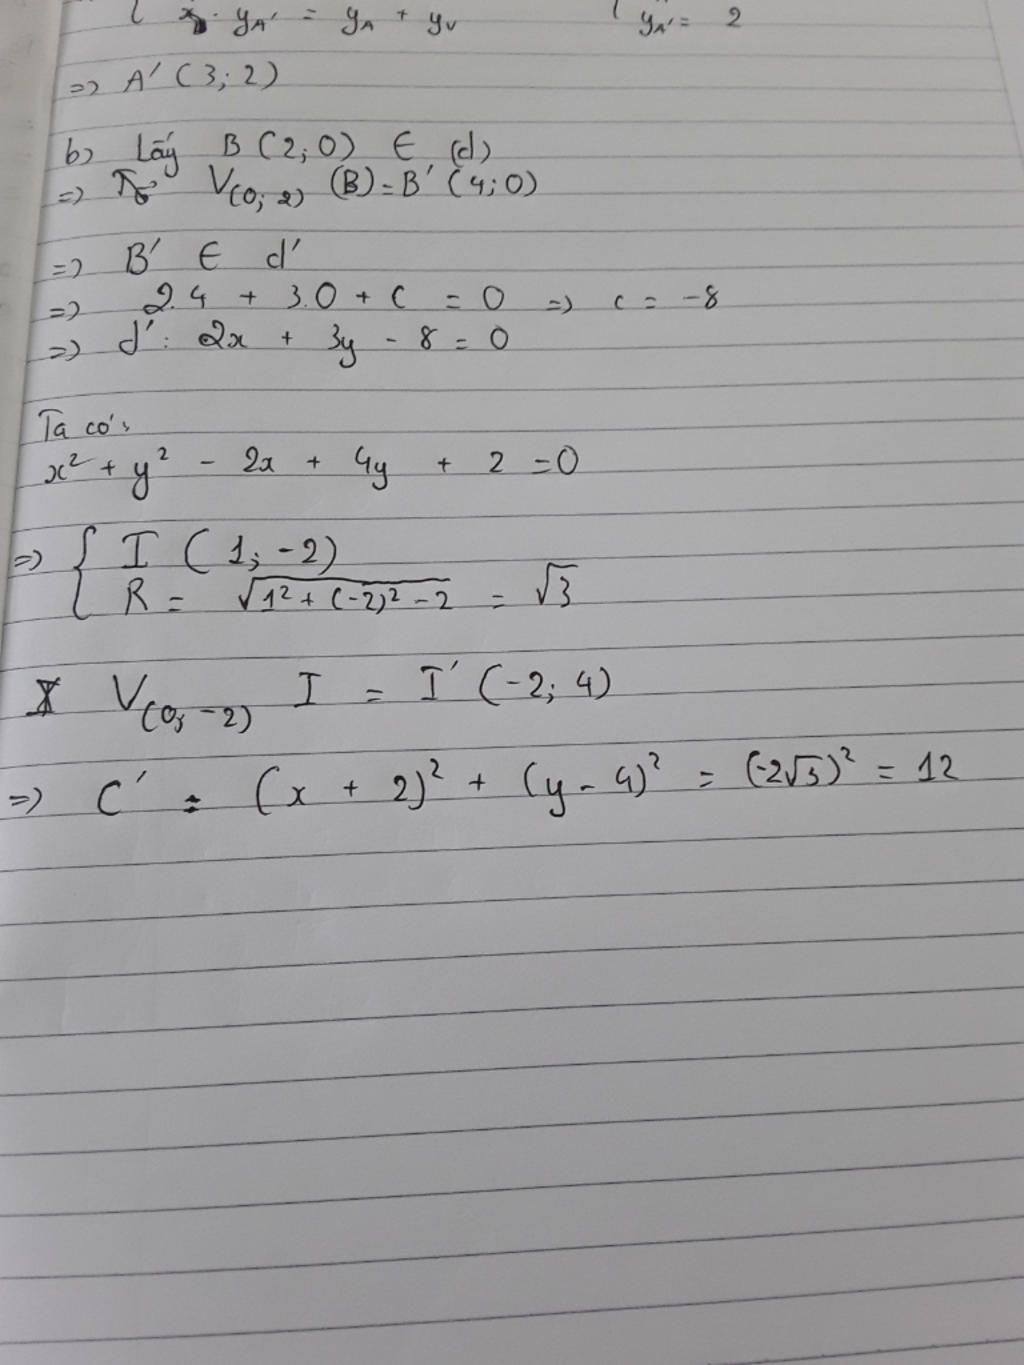 y_A' = y_A + y_v
y_A' = 2
=> A' (3; 2)
b) Lấy B (2; 0) ∈ (d)
=> V(0; 2) (B) = B' (4; 0)
=> B' ∈ d'
=> 2.4 + 3.0 + c = 0 => c = -8
=> d': 2x + 3y - 8 = 0
Ta có:
x² + y² - 2x + 4y + 2 = 0
=> { I (1; -2)
R = √(1² + (-2)² - 2) = √3
V(0; -2) I = I' (-2; 4)
=> C' = (x + 2)² + (y - 4)² = (-2√3)² = 12